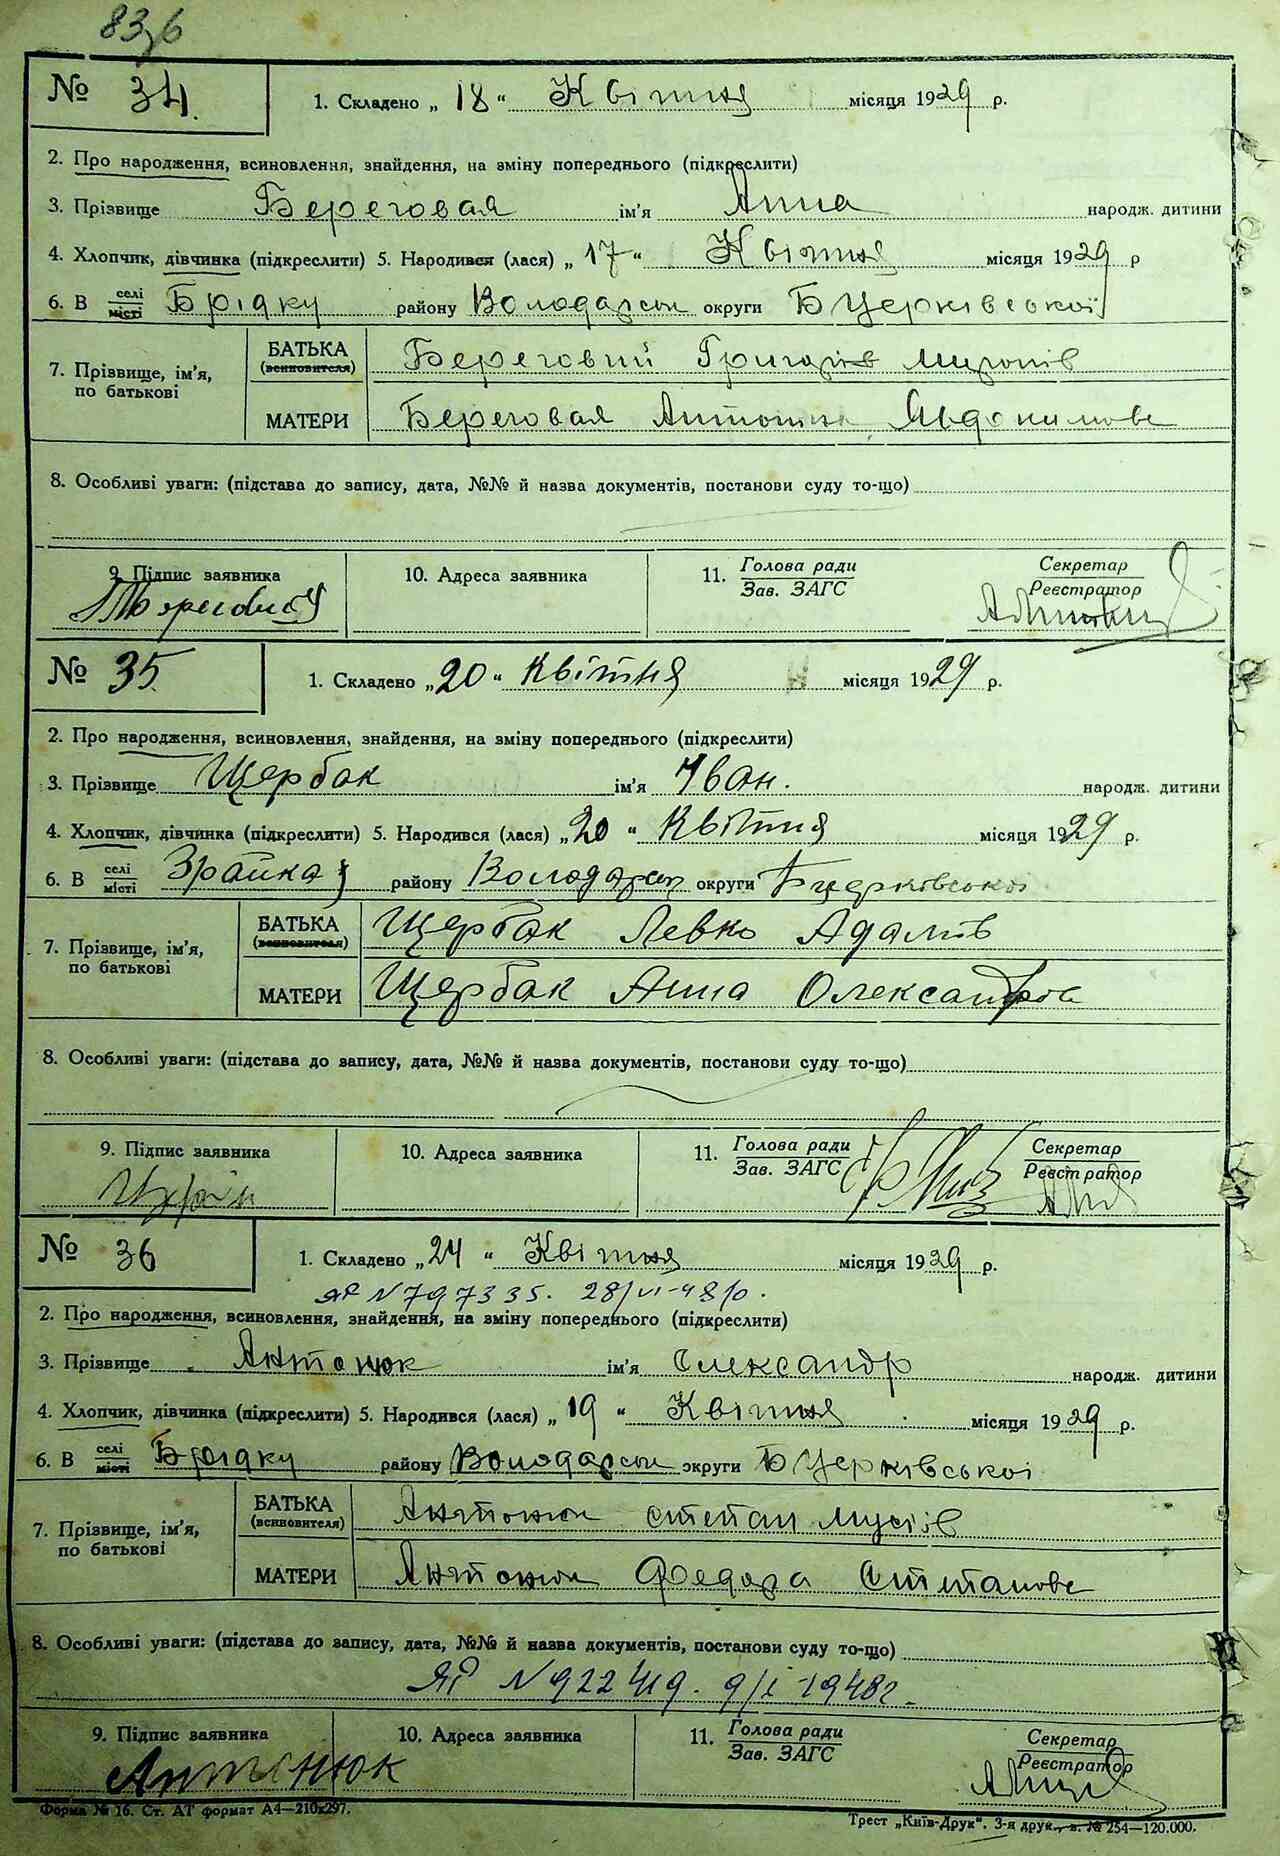 № 34. 1. Складено „18“ Квітня місяця 1929 р.
2. Про народження, всиновлення, знайдення, на зміну попереднього (підкреслити)
3. Прізвище Береговая ім'я Анна народж. дитини
4. Хлопчик, дівчинка (підкреслити) 5. Народився (лася) „17“ Квітня місяця 1929 р
6. В селі місті Брідку району Володарськ округи БЦерківської
7. Прізвище, ім'я, по батькові
БАТЬКА (всиновителя) Береговий Григорів Миронів
МАТЕРИ Береговая Антонина Явдокимове
8. Особливі уваги: (підстава до запису, дата, №№ й назва документів, постанови суду то-що)
9. Підпис заявника 10. Адреса заявника 11. Голова ради Зав. ЗАГС Секретар Реєстратор
№ 35. 1. Складено „20“ Квітня місяця 1929 р.
2. Про народження, всиновлення, знайдення, на зміну попереднього (підкреслити)
3. Прізвище Щербак ім'я Іван. народж. дитини
4. Хлопчик, дівчинка (підкреслити) 5. Народився (лася) „20“ Квітня місяця 1929 р.
6. В селі місті Зрайках району Володарськ округи Бцерківської
7. Прізвище, ім'я, по батькові
БАТЬКА (всиновителя) Щербак Левко Адамів
МАТЕРИ Щербак Анна Олександрова
8. Особливі уваги: (підстава до запису, дата, №№ й назва документів, постанови суду то-що)
9. Підпис заявника 10. Адреса заявника 11. Голова ради Зав. ЗАГС Секретар Реєстратор
№ 36 1. Складено „24“ Квітня місяця 1929 р.
ЯР N 797335. 28/VI-48
2. Про народження, всиновлення, знайдення, на зміну попереднього (підкреслити)
3. Прізвище Антонюк ім'я Олександр народж. дитини
4. Хлопчик, дівчинка (підкреслити) 5. Народився (лася) „19“ Квітня місяця 1929 р.
6. В селі місті Брідку району Володарськ округи БЦерківської
7. Прізвище, ім'я, по батькові
БАТЬКА (всиновителя) Антонюк Степан Мусіїв
МАТЕРИ Антонюк Федора Степанове
8. Особливі уваги: (підстава до запису, дата, №№ й назва документів, постанови суду то-що)
ЯР N 922419. 9/I-1948г.
9. Підпис заявника 10. Адреса заявника 11. Голова ради Зав. ЗАГС Секретар Реєстратор
Антонюк
Форма № 16. Ст. АТ формат А4—210х297. Трест „Київ-Друк“. 3-я друк., з. № 254—120.000.